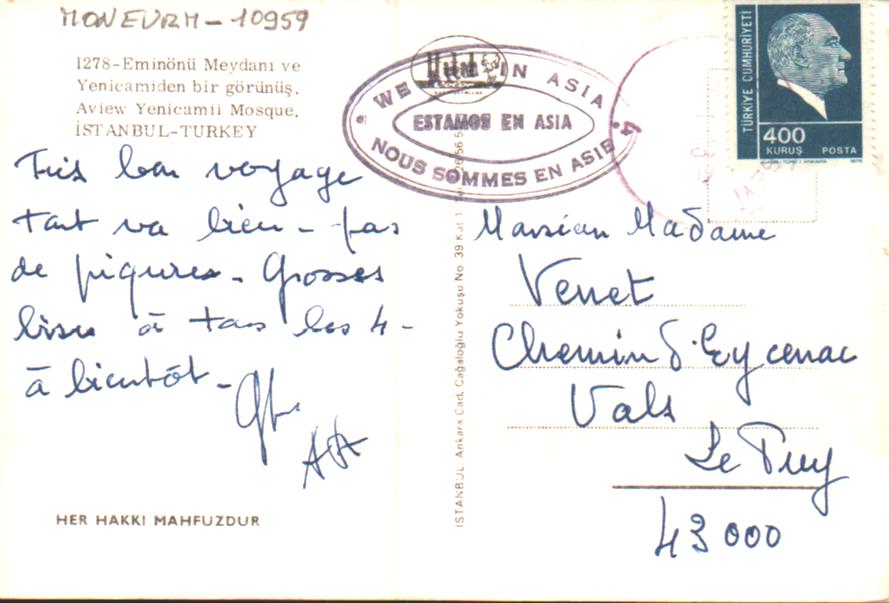 MONEVRM - 10959
1278-Eminönü Meydanı ve
Yenicamiden bir görünüş.
Aview Yenicamii Mosque.
İSTANBUL-TURKEY
Très bon voyage
tout va bien - pas
de piqures - Grosses
bises à tous les 4 -
à bientôt -
HER HAKKI MAHFUZDUR
WE IN ASIA
ESTAMOS EN ASIA
NOUS SOMMES EN ASIE
İSTANBUL Ankara Cad. Cağaloğlu Yokuşu No. 39 Kat 1
TÜRKİYE CUMHURİYETİ
400
KURUŞ POSTA
Monsieur Madame
Venet
Chemin d'Eycenac
Vals
Le Puy
43 000